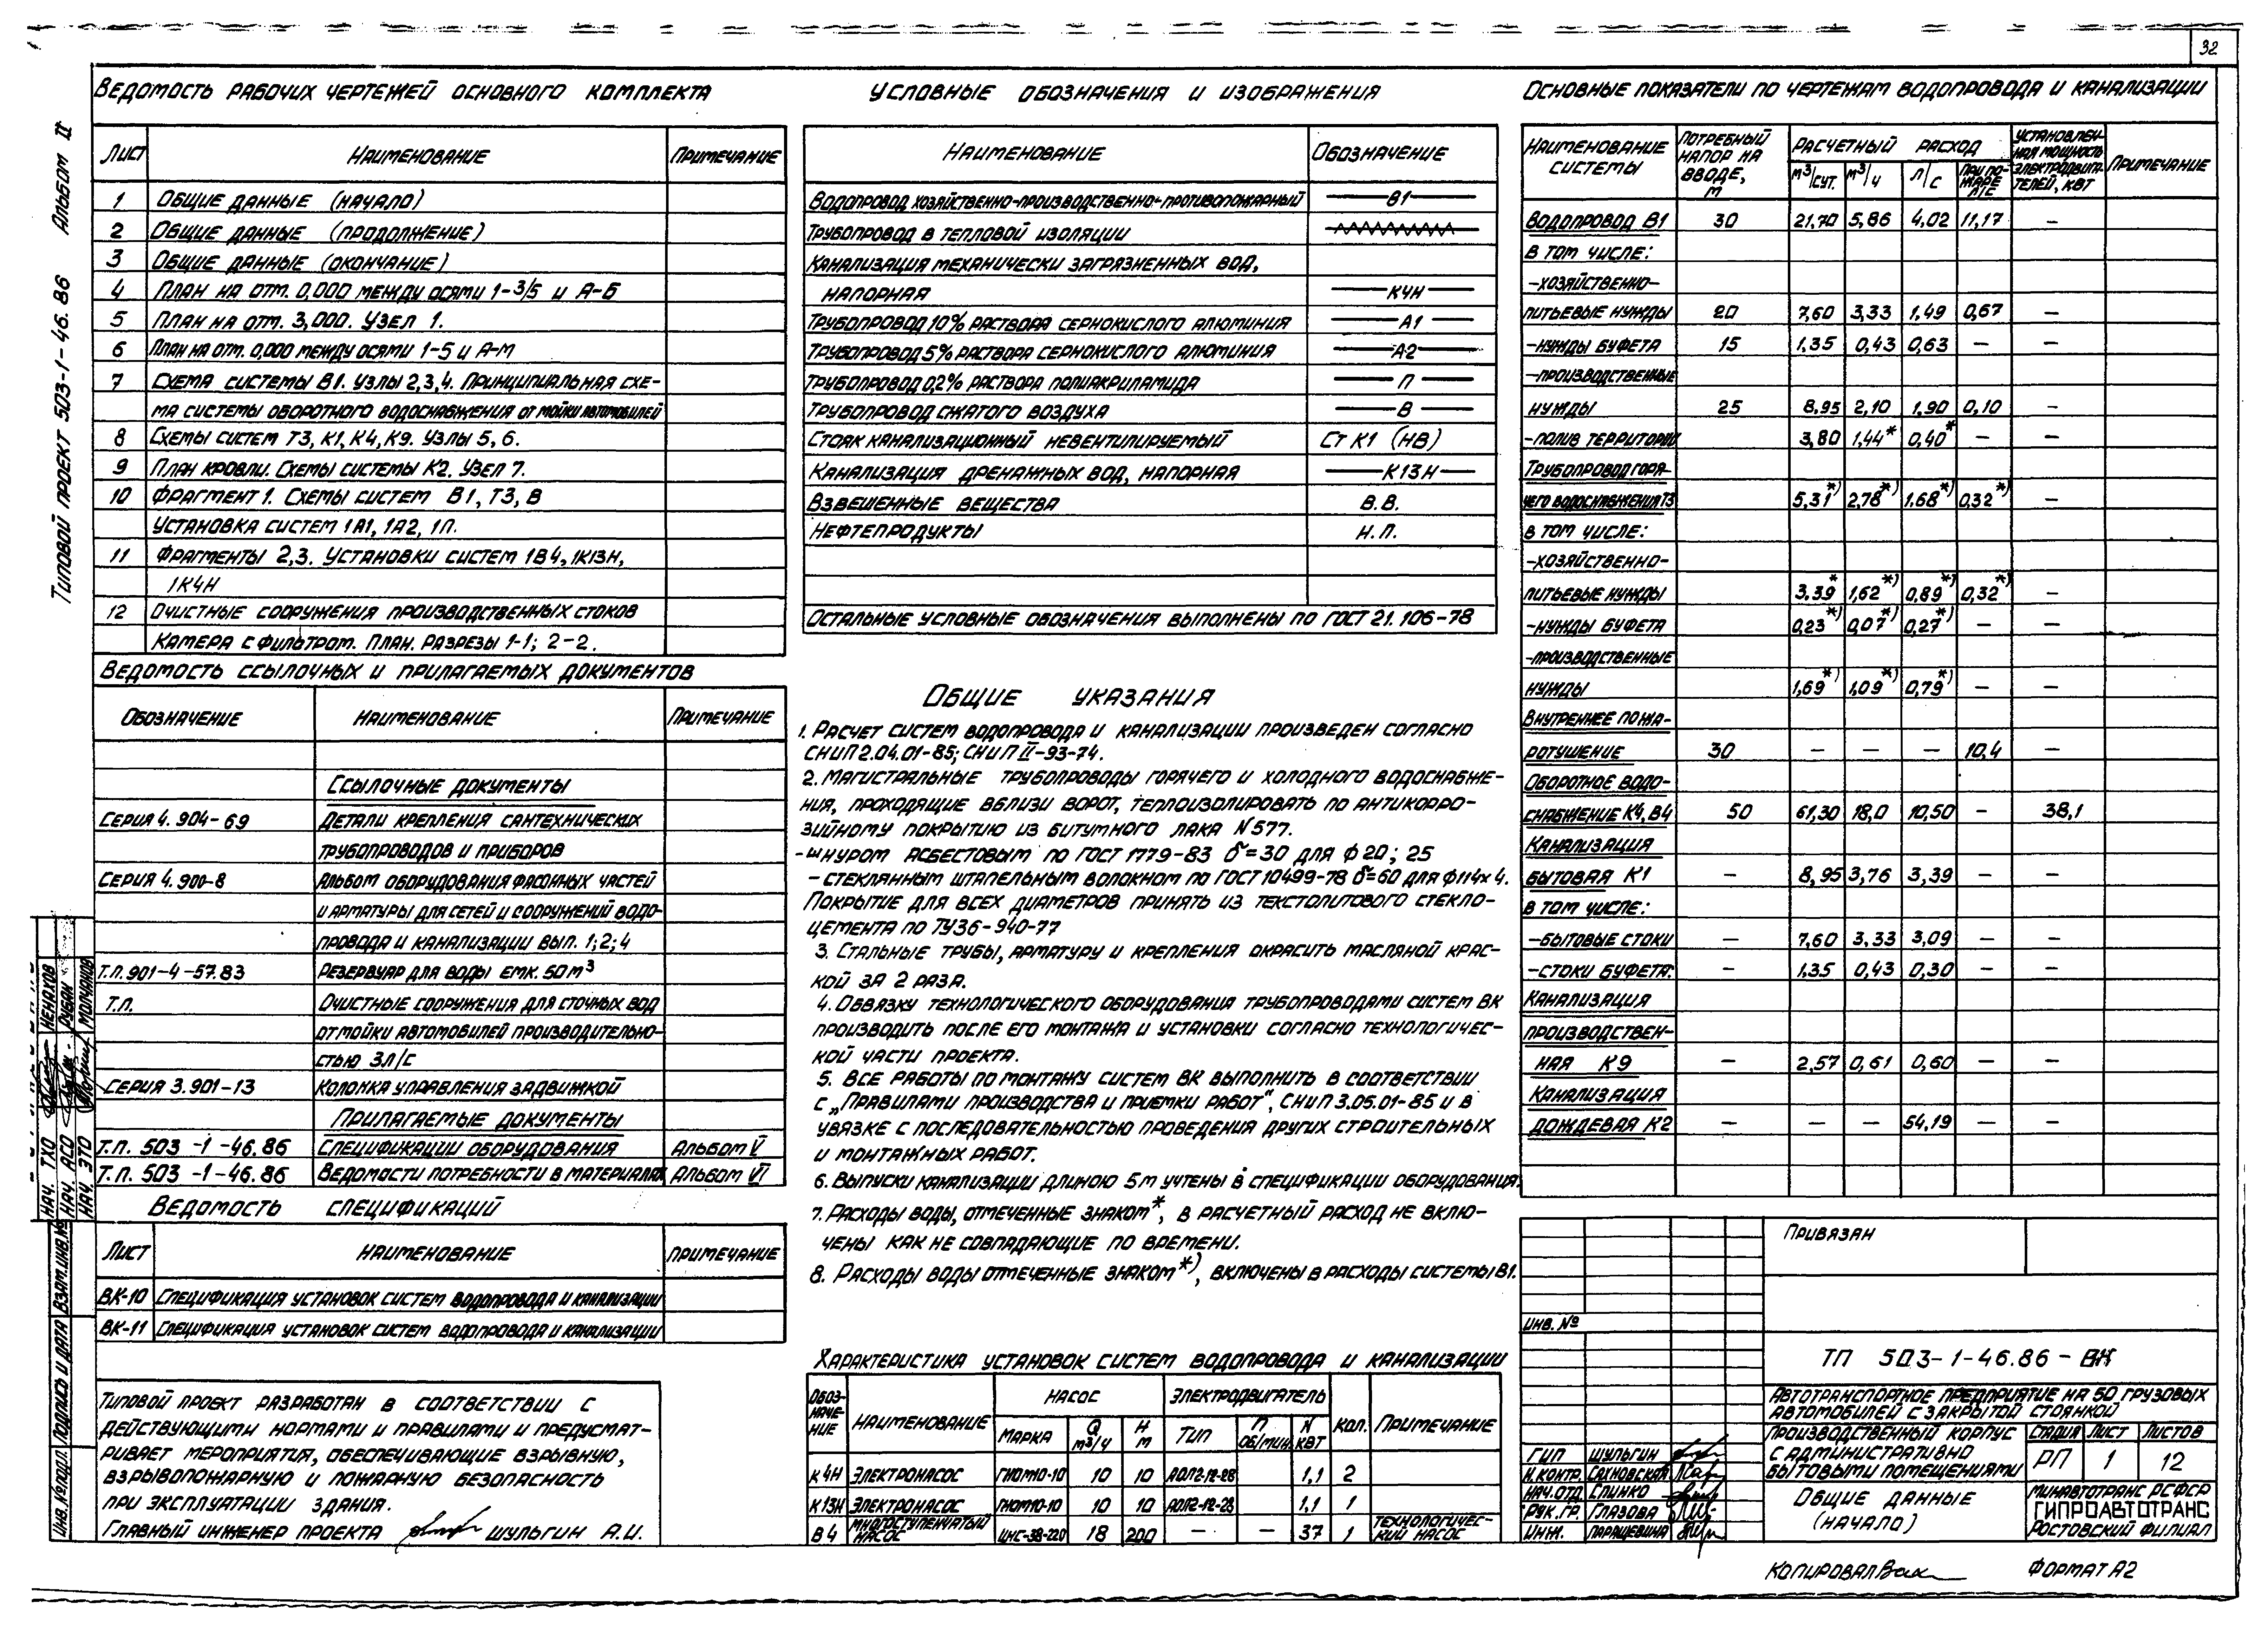 32
Типовой проект 503-1-46.86 Альбом II
Ведомость рабочих чертежей основного комплекта
Лист Наименование Примечание
1 Общие данные (начало)
2 Общие данные (продолжение)
3 Общие данные (окончание)
4 План на отм. 0,000 между осями 1-3/5 и А-Б
5 План на отм. 3,000. Узел 1.
6 План на отм. 0,000 между осями 1-5 и А-М
7 Схема системы В1. Узлы 2,3,4. Принципиальная схе-
ма системы оборотного водоснабжения от мойки автомобилей
8 Схемы систем Т3, К1, К4, К9. Узлы 5, 6.
9 План кровли. Схемы системы К2. Узел 7.
10 Фрагмент 1. Схемы систем В1, Т3, В
Установка систем 1А1, 1А2, 1П.
11 Фрагменты 2,3. Установки систем 1В4, 1К13Н,
1К4Н
12 Очистные сооружения производственных стоков
Камера с фильтром. План. Разрезы 1-1; 2-2.
Ведомость ссылочных и прилагаемых документов
Обозначение Наименование Примечание
Ссылочные документы
Серия 4.904-69 Детали крепления сантехнических
трубопроводов и приборов
Серия 4.900-8 Альбом оборудования фасонных частей
и арматуры для сетей и сооружений водо-
провода и канализации вып. 1; 2; 4
Т.п. 901-4-57.83 Резервуар для воды емк. 50 м³
Т.п. Очистные сооружения для сточных вод
от мойки автомобилей производительно-
стью 3л/с
Серия 3.901-13 Колонка управления задвижкой
Прилагаемые документы
Т.п. 503-1-46.86 Спецификации оборудования Альбом V
Т.п. 503-1-46.86 Ведомости потребности в материалах Альбом VI
Ведомость спецификаций
Лист Наименование Примечание
ВК-10 Спецификация установок систем водопровода и канализации
ВК-11 Спецификация установок систем водопровода и канализации
Типовой проект разработан в соответствии с
действующими нормами и правилами и предусмат-
ривает мероприятия, обеспечивающие взрывную,
взрывопожарную и пожарную безопасность
при эксплуатации здания.
Главный инженер проекта Шульгин А.И.
Нач. ТХО Ненахов
Нач. АСО Рубан
Нач. ЭТО Молчанов
Взам. инв. №
Подпись и дата
Инв. № подл.
Условные обозначения и изображения
Наименование Обозначение
Водопровод хозяйственно-производственно-противопожарный В1
Трубопровод в тепловой изоляции
Канализация механически загрязненных вод,
напорная К4Н
Трубопровод 10% раствора сернокислого алюминия А1
Трубопровод 5% раствора сернокислого алюминия А2
Трубопровод 0,2% раствора полиакриламида П
Трубопровод сжатого воздуха В
Стояк канализационный невентилируемый Ст К1 (НВ)
Канализация дренажных вод, напорная К13Н
Взвешенные вещества В.В.
Нефтепродукты Н.П.
Остальные условные обозначения выполнены по ГОСТ 21.106-78
Общие указания
1. Расчет систем водопровода и канализации произведен согласно
СНиП 2.04.01-85; СНиП II-93-74.
2. Магистральные трубопроводы горячего и холодного водоснабже-
ния, проходящие вблизи ворот, теплоизолировать по антикорро-
зийному покрытию из битумного лака №577.
- шнуром асбестовым по ГОСТ 1779-83 δ=30 для ф 20; 25
- стеклянным штапельным волокном по ГОСТ 10499-78 δ=60 для ф114х4.
Покрытие для всех диаметров принять из текстолитового стекло-
цемента по ТУ36-940-77
3. Стальные трубы, арматуру и крепления окрасить масляной крас-
кой за 2 раза.
4. Обвязку технологического оборудования трубопроводами систем ВК
производить после его монтажа и установки согласно технологичес-
кой части проекта.
5. Все работы по монтажу систем ВК выполнить в соответствии
с „Правилами производства и приемки работ“, СНиП 3.05.01-85 и в
увязке с последовательностью проведения других строительных
и монтажных работ.
6. Выпуски канализации длиною 5м учтены в спецификации оборудования.
7. Расходы воды, отмеченные знаком*, в расчетный расход не вклю-
чены как не совпадающие по времени.
8. Расходы воды отмеченные знаком*), включены в расходы системы В1.
Характеристика установок систем водопровода и канализации
Обоз-наче-ние Наименование Насос Электродвигатель Кол. Примечание
Марка Q м³/ч Н м Тип П об/мин. N кВт
К4Н Электронасос ГНОМ10-10 10 10 АОЛ2-12-2В 1,1 2
К13Н Электронасос ГНОМ10-10 10 10 АОЛ2-12-2В 1,1 1
В4 Многоступенчатый насос ЦНС-38-220 18 200 – – 37 1 Технологичес-кий насос
Основные показатели по чертежам водопровода и канализации
Наименование системы Потребный напор на вводе, м Расчетный расход Установлен-ная мощность электродвига-телей, кВт Примечание
м³/сут. м³/ч л/с При по-жаре л/с
Водопровод В1 30 21,70 5,86 4,02 11,17 –
в том числе:
-хозяйственно-
питьевые нужды 20 7,60 3,33 1,49 0,67 –
-нужды буфета 15 1,35 0,43 0,63 – –
-производственные
нужды 25 8,95 2,10 1,90 0,10 –
-полив территории 3,80 1,44* 0,40* – –
Трубопровод горя-
чего водоснабжения Т3 5,31*) 2,78*) 1,68*) 0,32*) –
в том числе:
-хозяйственно-
питьевые нужды 3,39* 1,62*) 0,89*) 0,32*) –
-нужды буфета 0,23*) 0,07*) 0,27*) – –
-производственные
нужды 1,69*) 1,09*) 0,79*) – –
Внутреннее пожа-
ротушение 30 – – – 10,4 –
Оборотное водо-
снабжение К4, В4 50 61,30 18,0 10,50 – 38,1
Канализация
бытовая К1 – 8,95 3,76 3,39 – –
в том числе:
-бытовые стоки – 7,60 3,33 3,09 – –
-стоки буфета. – 1,35 0,43 0,30 – –
Канализация
производствен-
ная К9 – 2,57 0,61 0,60 – –
Канализация
дождевая К2 – – – 54,19 – –
Привязан
Инв. №
ТП 503-1-46.86-ВК
Автотранспортное предприятие на 50 грузовых
автомобилей с закрытой стоянкой
Производственный корпус
с административно
бытовыми помещениями
Стадия Лист Листов
РП 1 12
ГИП Шульгин
Н.контр. Сахновская
Нач.отд Слинко
Рук.гр. Глазова
Инж. Паращевина
Общие данные
(начало)
Минавтотранс РСФСР
ГИПРОАВТОТРАНС
Ростовский филиал
Копировал
Формат А2